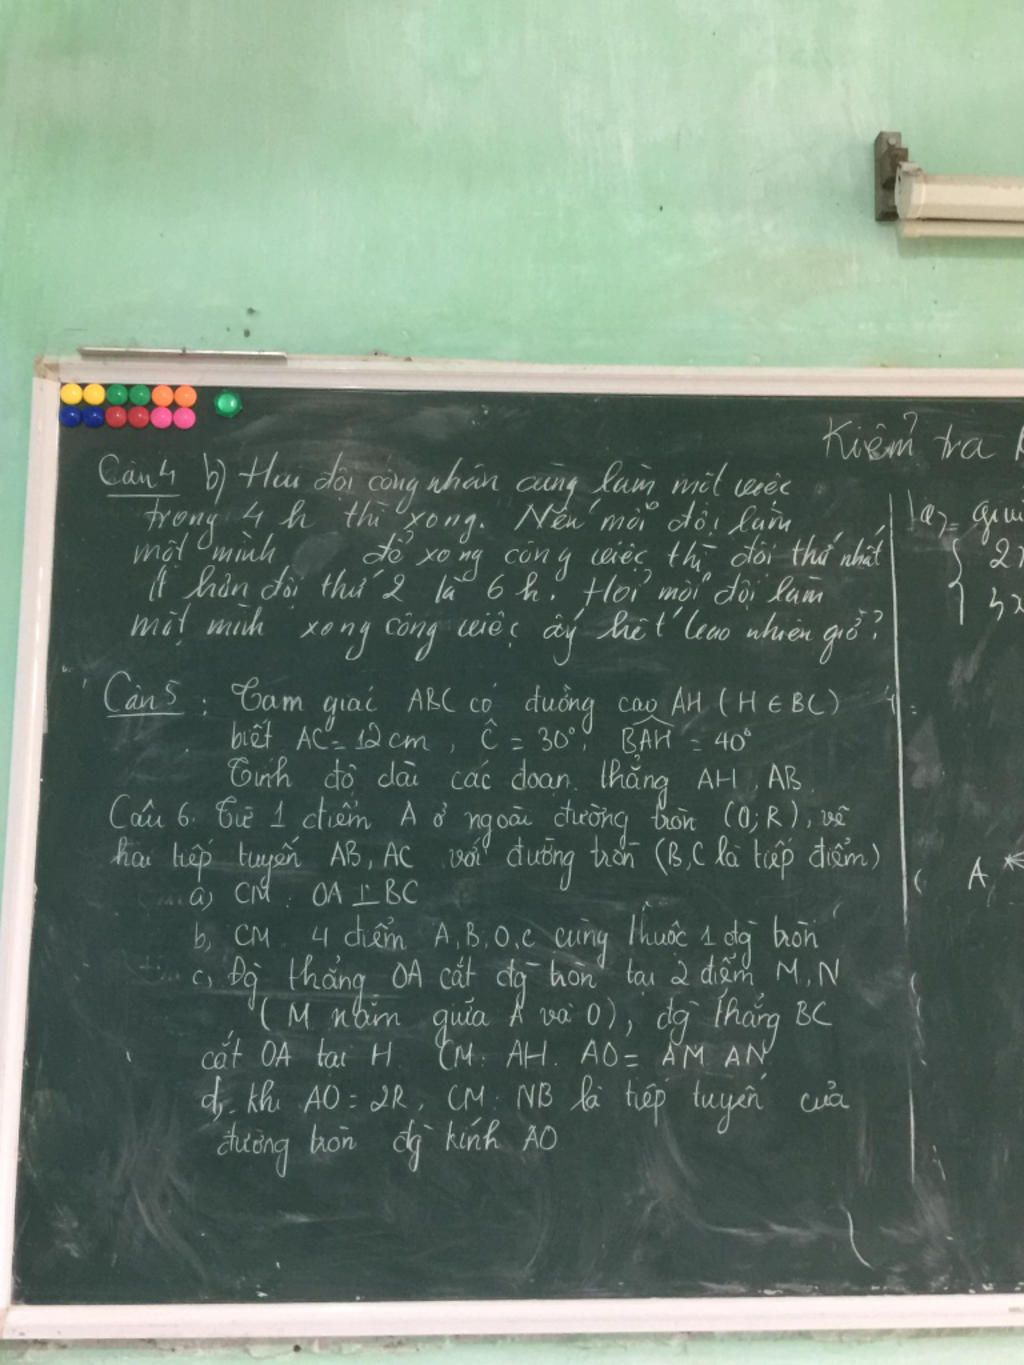 Kiểm tra
Câu 4 b) Hai đội công nhân cùng làm một việc
trong 4 h thì xong. Nếu mỗi đội làm
một mình để xong công việc thì đội thứ nhất
ít hơn đội thứ 2 là 6 h. Hỏi mỗi đội làm
một mình xong công việc ấy hết bao nhiêu giờ?
Câu 5 : Tam giác ABC có đường cao AH (H ∈ BC)
biết AC = 12 cm, Ĉ = 30°, BAH = 40°
Tính độ dài các đoạn thẳng AH, AB.
Câu 6. Từ 1 điểm A ở ngoài đường tròn (O; R), vẽ
hai tiếp tuyến AB, AC với đường tròn (B,C là tiếp điểm)
a) CM: OA ⊥ BC
b, CM 4 điểm A, B, O, C cùng thuộc 1 đg tròn
c, Đg thẳng OA cắt đg tròn tại 2 điểm M, N
(M nằm giữa A và O), đg thẳng BC
cắt OA tại H. CM: AH. AO = AM AN
d, khi AO = 2R, CM: NB là tiếp tuyến của
đường tròn đg kính AO
a,
2x
A